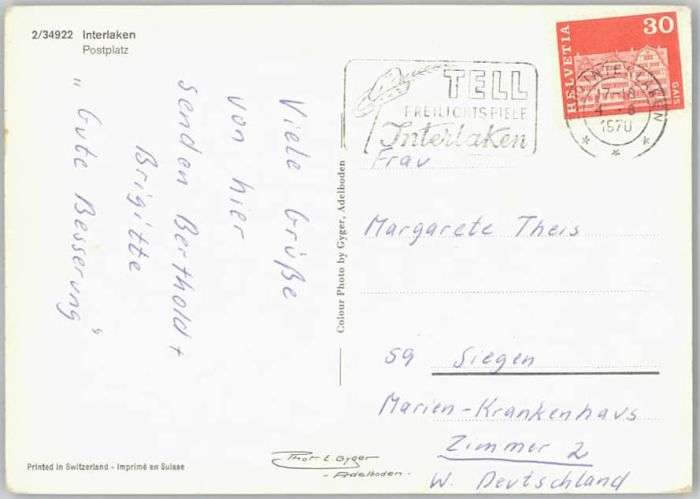 2/34922 Interlaken
Postplatz
Viele Grüße
von hier
senden Berthold +
Brigitte
„Gute Besserung“
Printed in Switzerland - Imprimé en Suisse
Colour Photo by Gyger, Adelboden
Phot. E. Gyger
- Adelboden -
TELL
FREILICHTSPIELE
Interlaken
HELVETIA
30
GAIS
INTERLAKEN
1970
Frau
Margarete Theis
59 Siegen
Marien-Krankenhaus
Zimmer 2
W. Deutschland